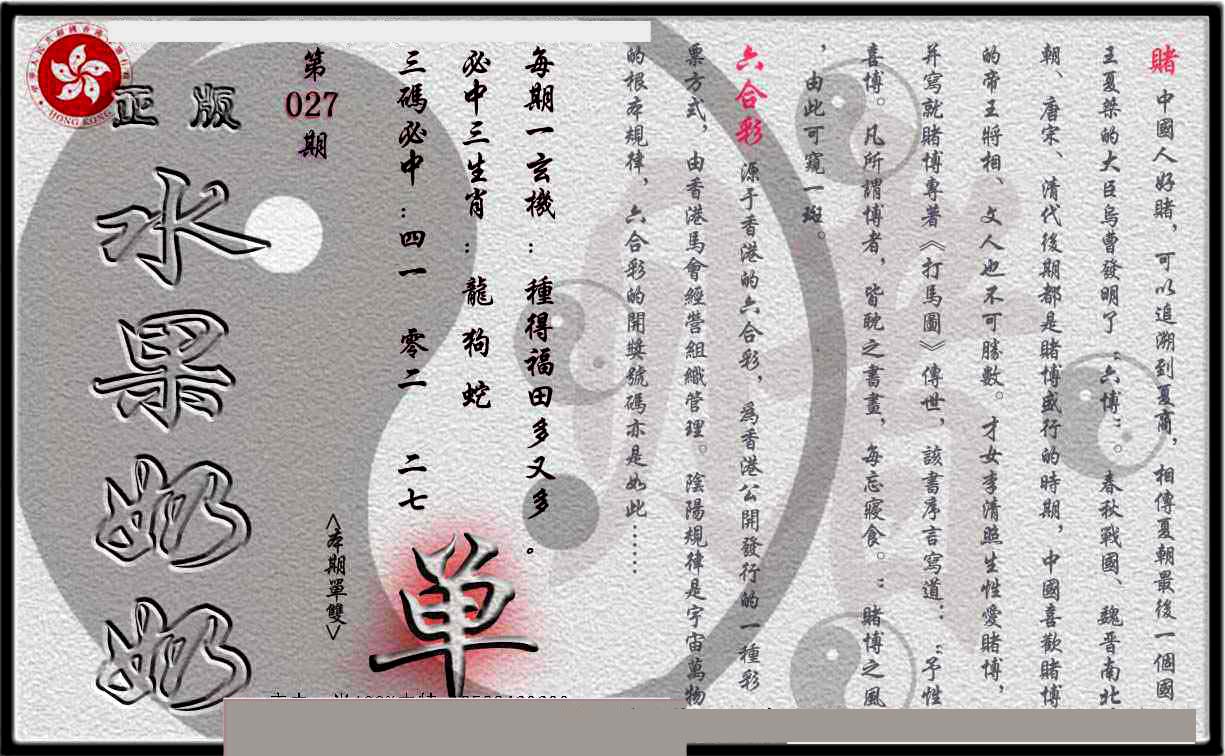 賭 中國人好賭，可以追溯到夏商，相傳夏朝最後一個國
王夏桀的大臣烏曹發明了“六博”。春秋戰國、魏晋南北
朝、唐宋、清代後期都是賭博盛行的時期，中國喜歡賭博
的帝王將相、文人也不可勝數。才女李清照生性愛賭博，
并寫就賭博專著《打馬圖》傳世，該書序言寫道：“予性
喜博。凡所謂博者，皆耽之書畫，每忘寢食。”賭博之風
，由此可窺一斑。
六合彩 源于香港的六合彩，為香港公開發行的一種彩
票方式，由香港馬會經營組織管理。陰陽規律是宇宙萬物
的根本規律，六合彩的開獎號碼亦是如此……
每期一玄機：種得福田多又多。
必中三生肖：龍 狗 蛇
三碼必中：四一 零二 二七
单
<本期單雙>
第
027
期
正版
水果奶奶
HONG KONG